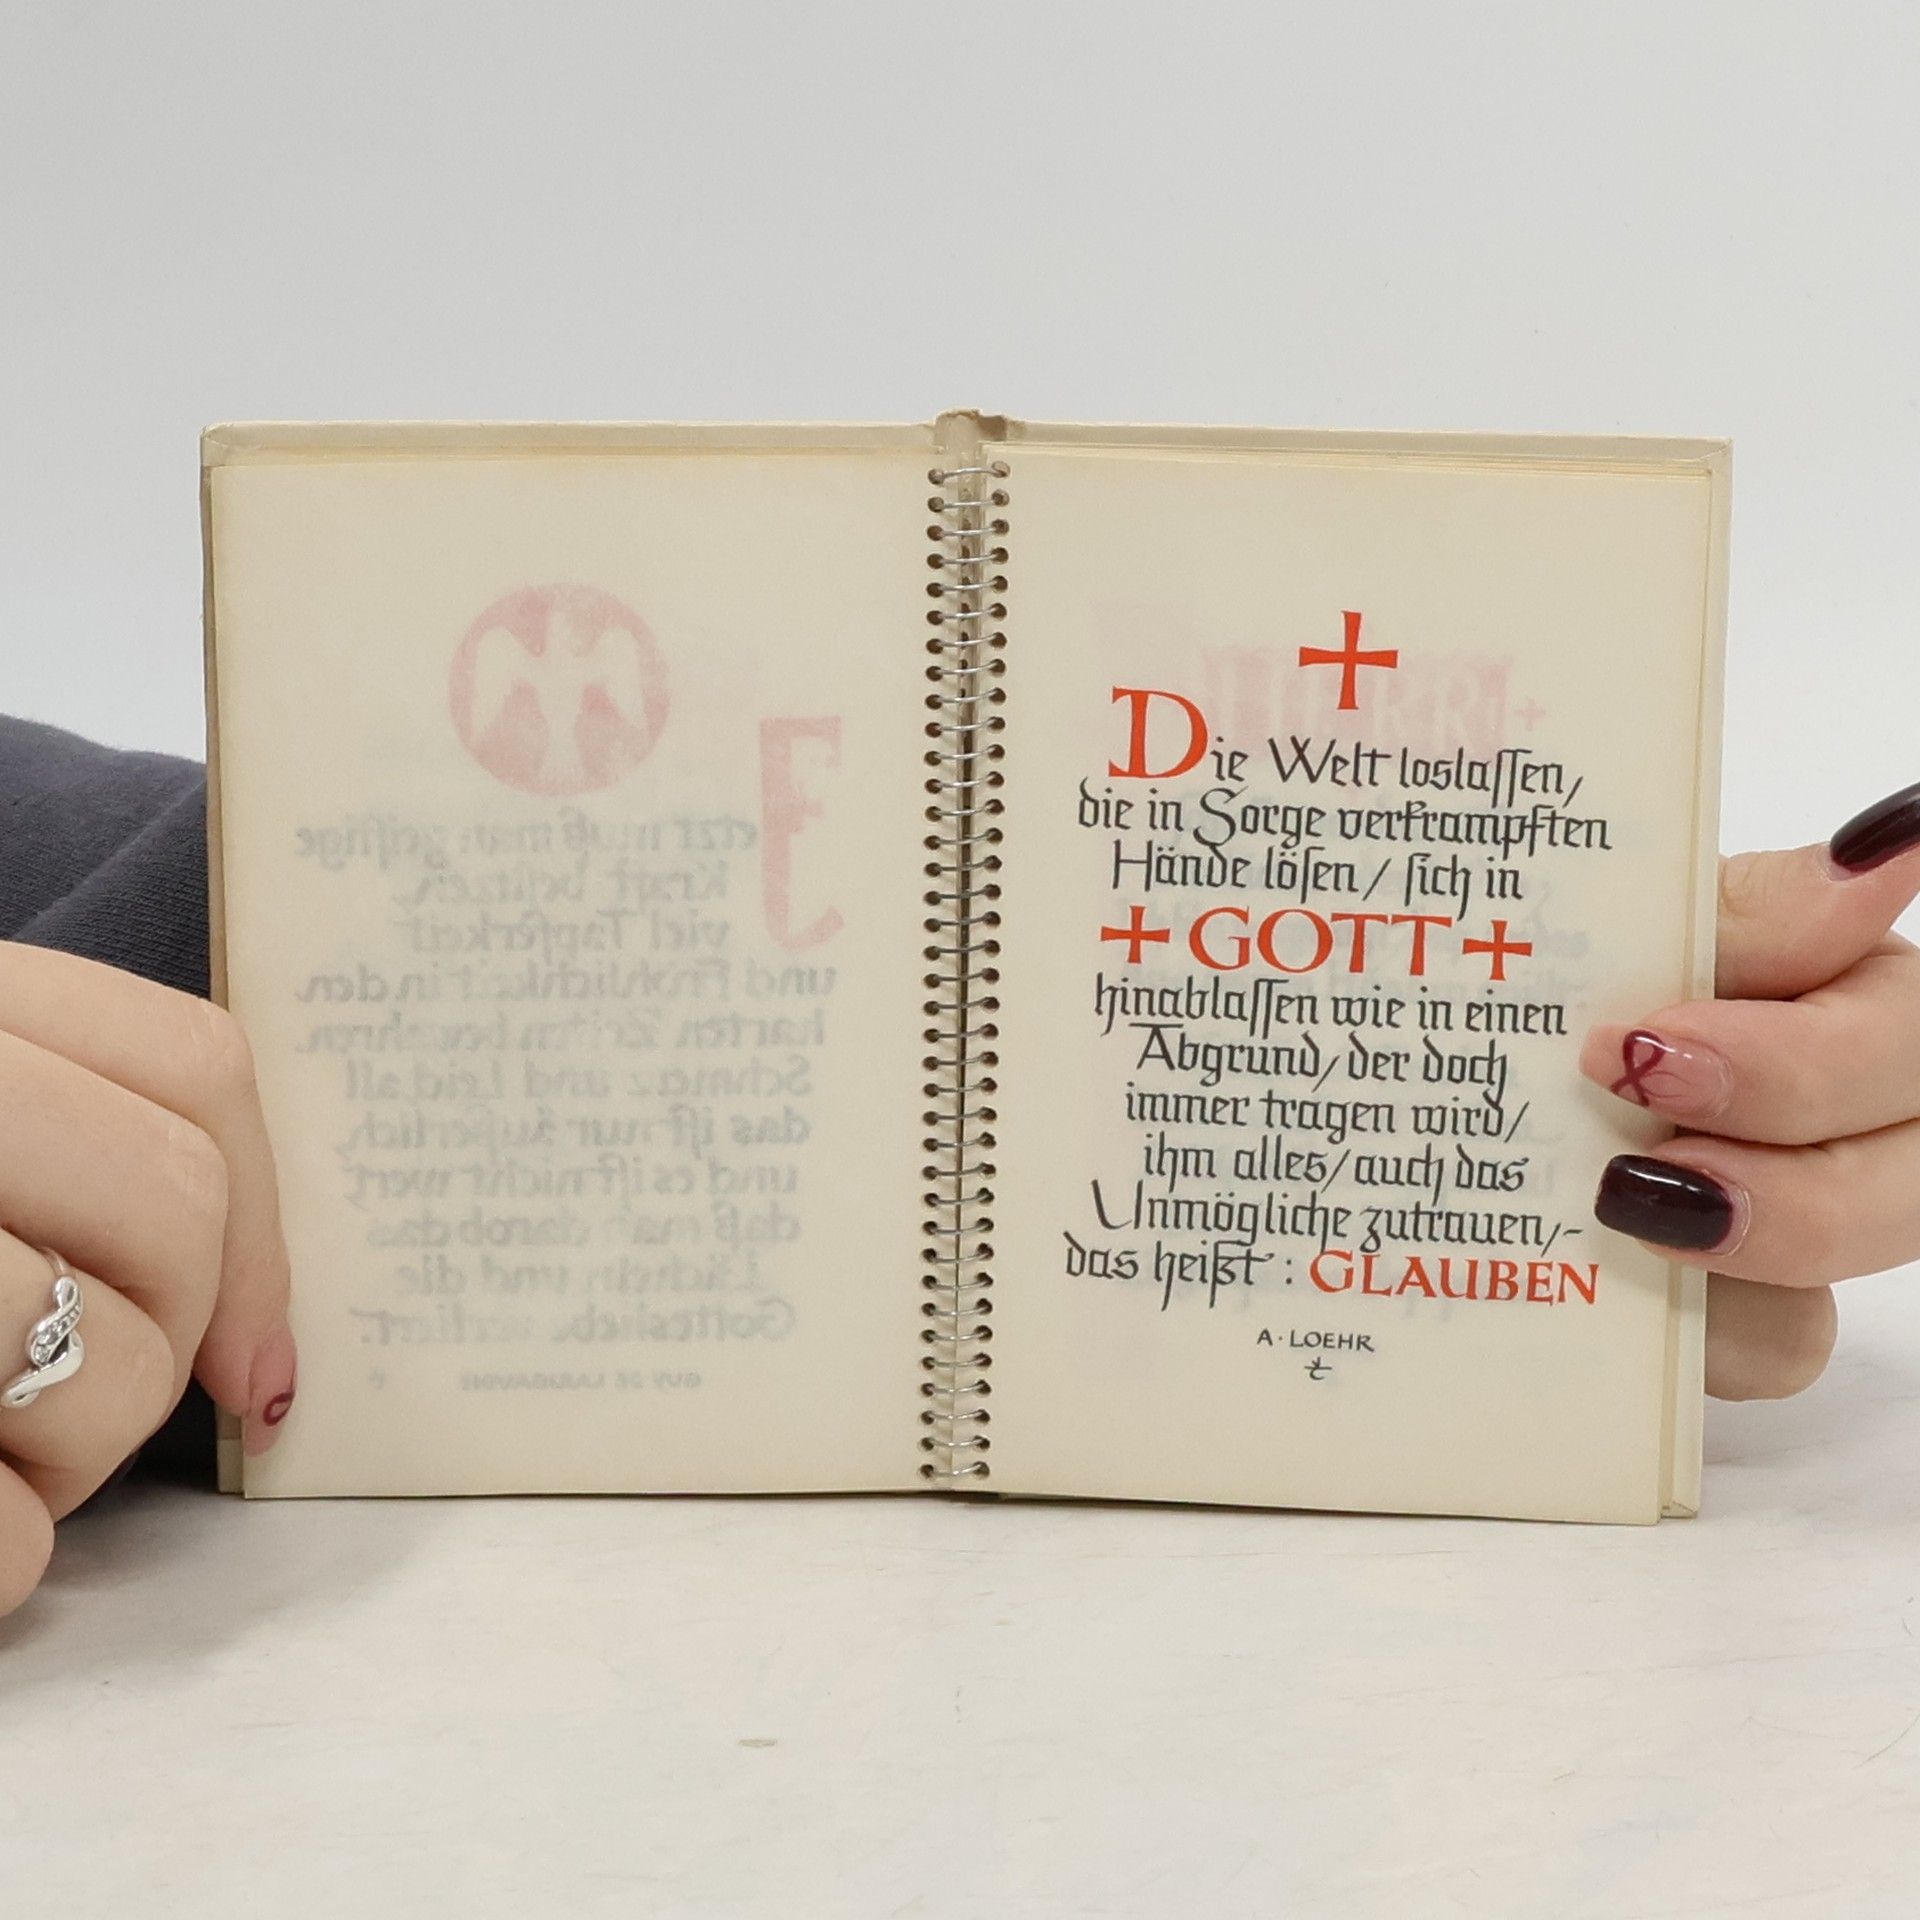 Jetzt muß man geistige
Kraft besitzen,
viel Tapferkeit
und Fröhlichkeit in den
harten Zeiten bewahren.
Schmerz und Leid all
das iſt nur äußerlich,
und es iſt nicht wert
daß man darob das
Lächeln und die
Gottesliebe verliert.
GUY DE LARIGAUDIE
Die Welt loslaſſen/
die in Sorge verkrampften
Hände löſen/ ſich in
+ GOTT +
hinablaſſen wie in einen
Abgrund/der doch
immer tragen wird/
ihm alles/auch das
Unmögliche zutrauen/-
das heißt: GLAUBEN
A·LOEHR
HERR